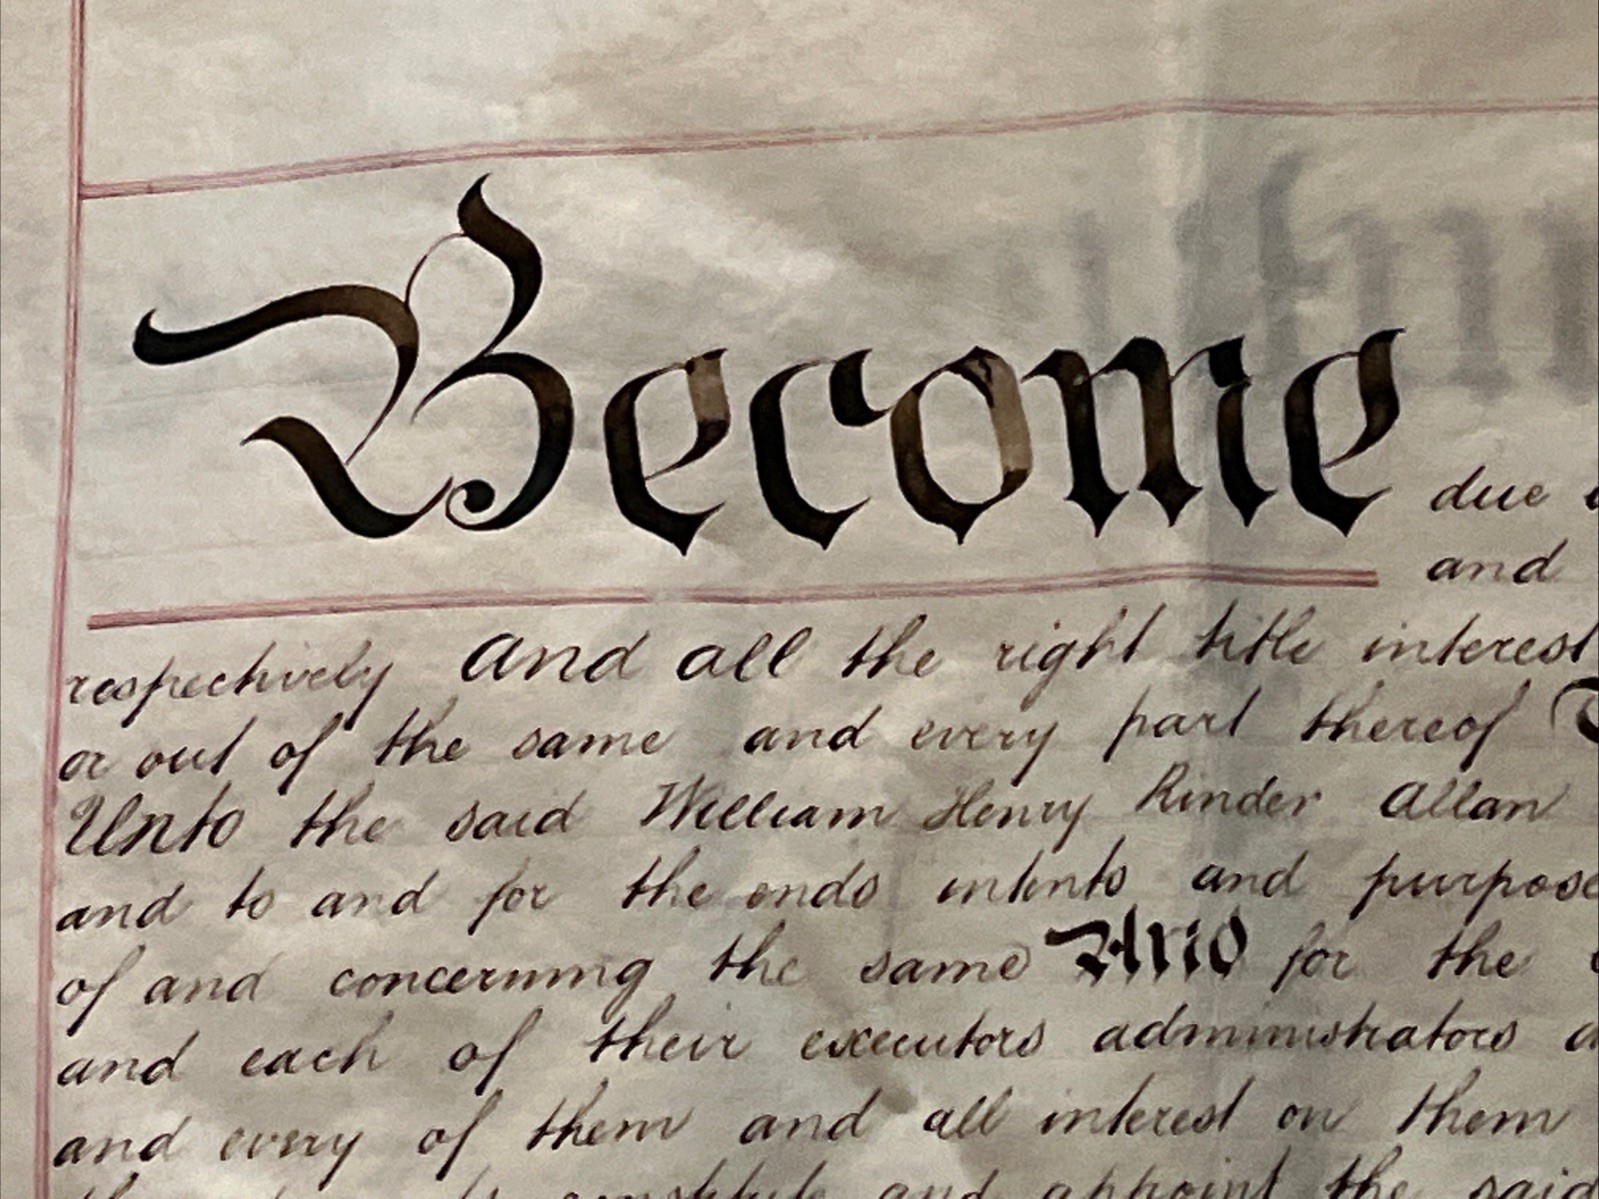 Become due
and
respectively And all the right title interest
or out of the same and every part thereof
Unto the said William Henry Rinder Allan
and to and for the ends intents and purpose
of and concerning the same And for the
and each of their executors administrators
and every of them and all interest on them
constitute and appoint the said